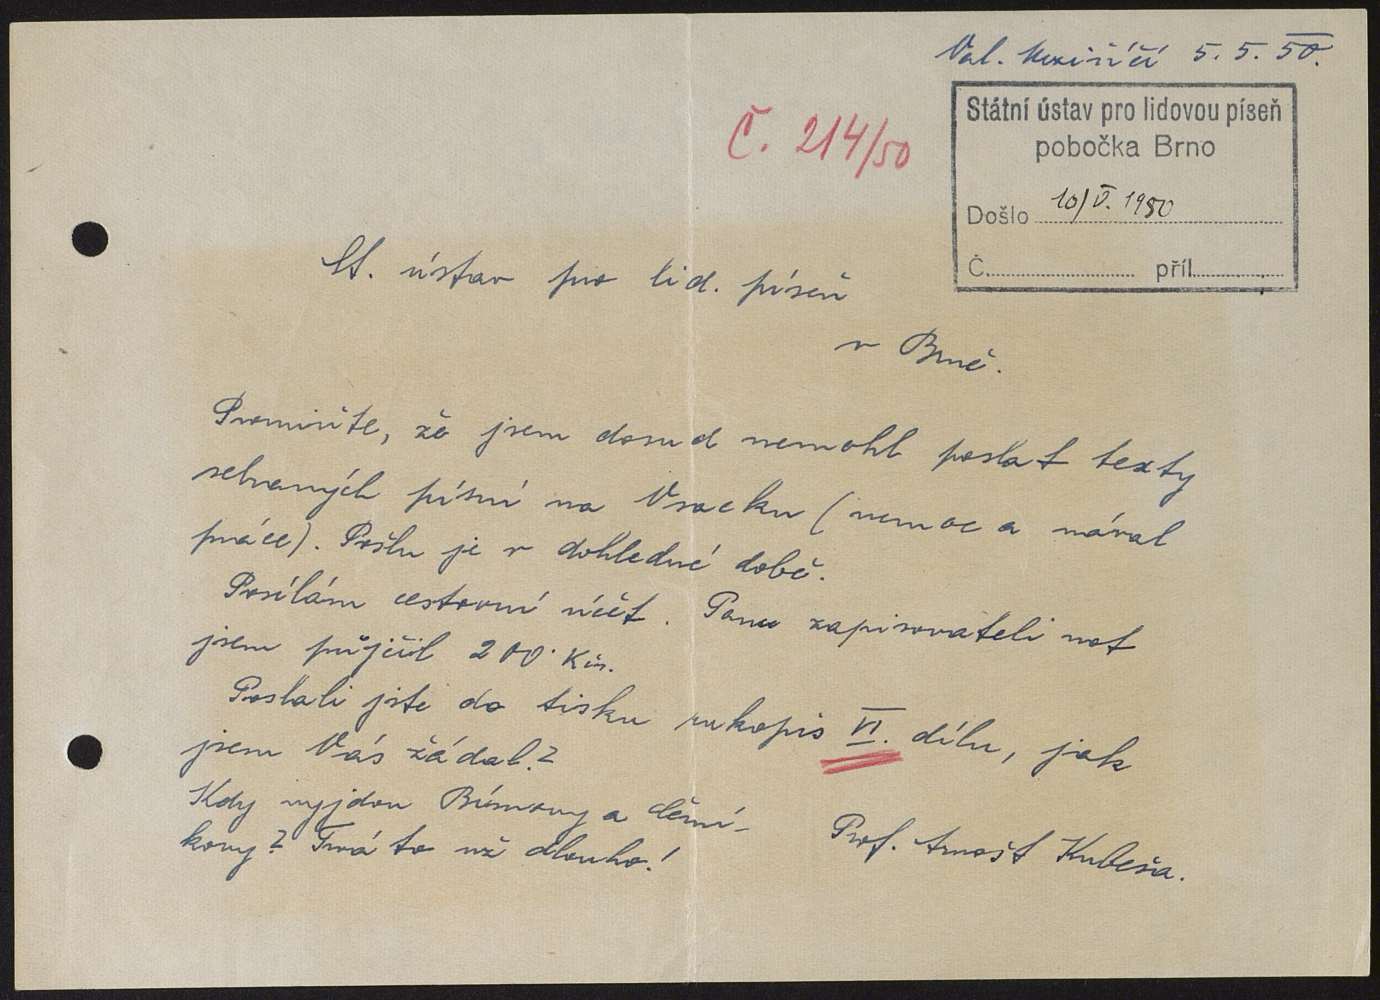 Val. Meziříčí 5.5.50.
Č. 214/50
Státní ústav pro lidovou píseň
pobočka Brno
Došlo 10/V. 1950
Č. příl.
St. ústav pro lid. píseň
v Brně.
Promiňte, že jsem dosud nemohl poslat texty
sebraných písní na Vsacku (nemoc a nával
práce). Pošlu je v dohledné době.
Posílám cestovní účet. Panu zapisovateli not
jsem půjčil 200 Kčs.
Poslali jste do tisku rukopis VI. dílu, jak
jsem Vás žádal?
Kdy vyjdou Bímovy a Černí-
kovy? Trvá to už dlouho!
Prof. Arnošt Kubeša.